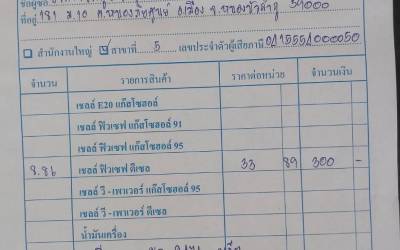 ที่อยู่ 181 ม.10 ต.หนองภัยศูนย์ อ.เมือง จ.หนองบัวลำภู 39000
สำนักงานใหญ่ สาขาที่ 5 เลขประจำตัวผู้เสียภาษี
จำนวน รายการสินค้า ราคาต่อหน่วย จำนวนเงิน
เชลล์ E20 แก๊สโซฮอล์
เชลล์ ฟิวเซฟ แก๊สโซฮอล์ 91
เชลล์ ฟิวเซฟ แก๊สโซฮอล์ 95
8.86 เชลล์ ฟิวเซฟ ดีเซล 33 89 300 -
เชลล์ วี - เพาเวอร์ แก๊สโซฮอล์ 95
เชลล์ วี - เพาเวอร์ ดีเซล
น้ำมันเครื่อง